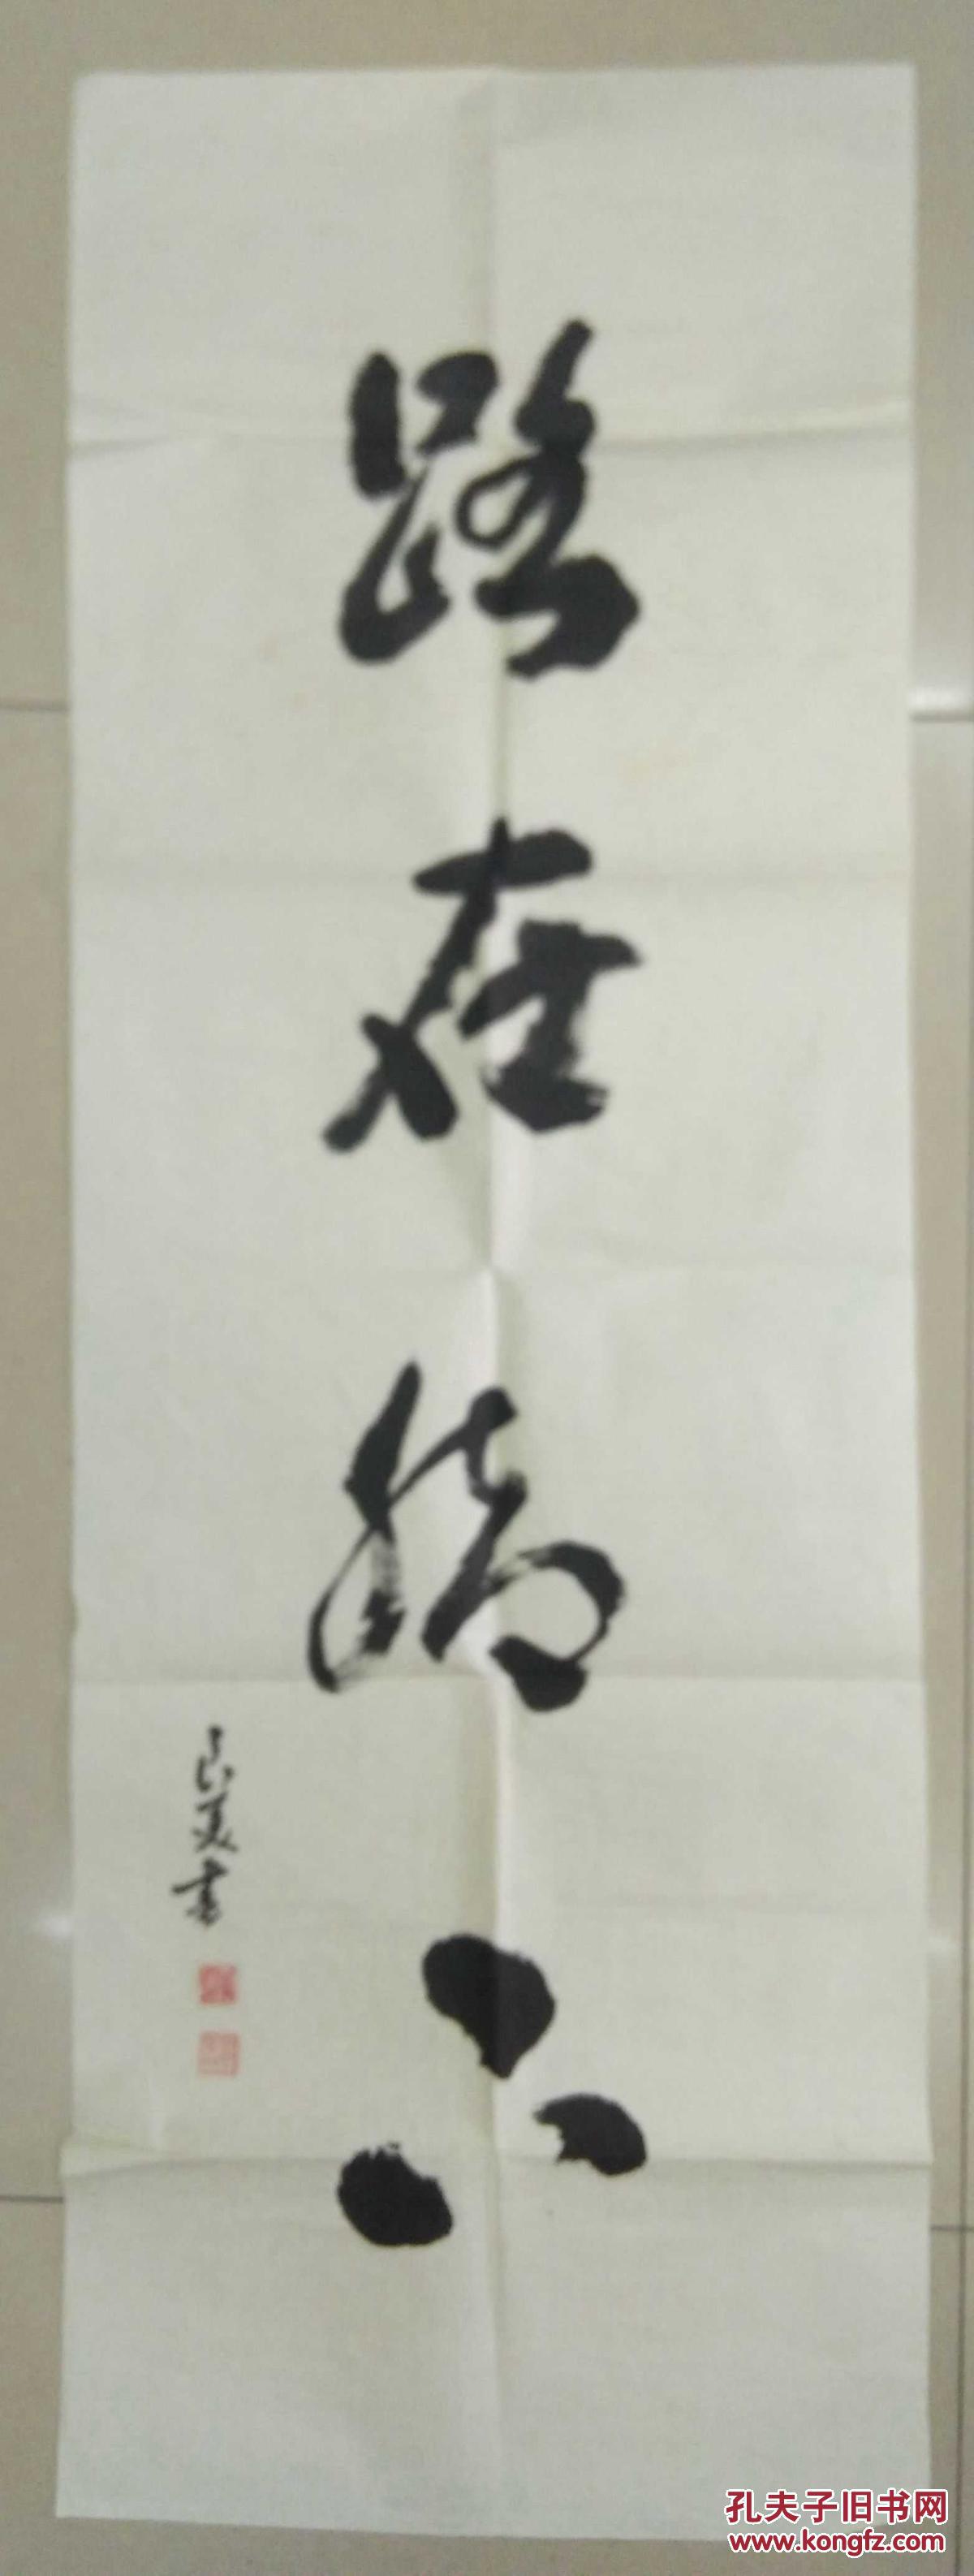 路在脚下
良美书
孔夫子旧书网
www.kongfz.com